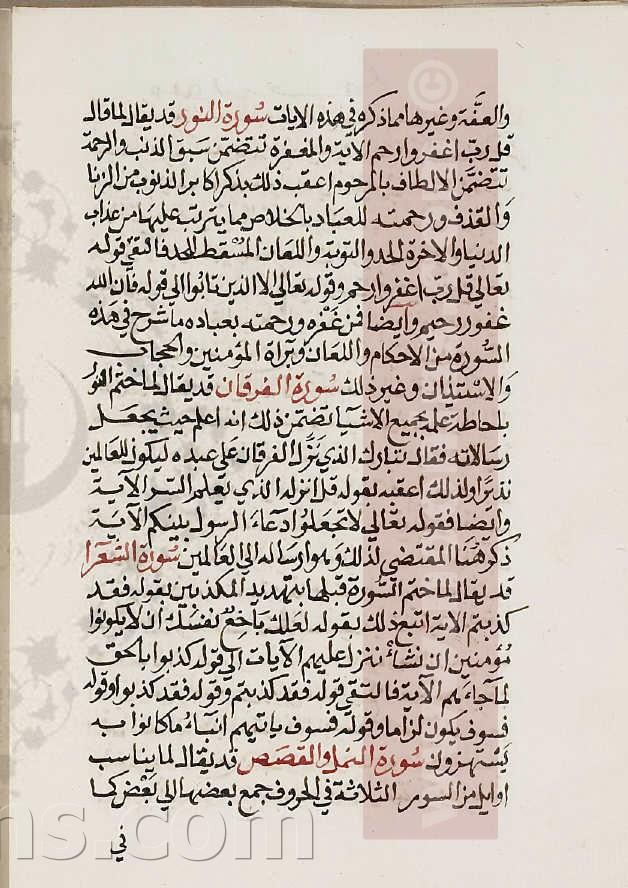 والعفّة وغيرها مما ذكره في هذه الايات سورة النور قد يقال لما قال
قل رب اغفر وارحم الاية والمغفرة تتضمن سبق الذنب والرحمة
تتضمن الالطاف بالمرحوم اعقب ذلك بذكر اكابر الذنوب من الزنا
والقذف ورحمته للعباد بالخلاص مما يترتب عليها من عذاب
الدنيا والاخرة الحد والتوبة واللعان المسقط للحد فالتقى قوله
تعالي قل رب اغفر وارحم وقوله تعالي الا الذين تابوا الي قوله فان الله
غفور رحيم وايضا فمن غفره ورحمته بعباده ما شرح في هذه
السورة من الاحكام واللعان وبراة المؤمنين والحجاب
والاستيذان وغير ذلك سورة الفرقان قد يقال لما ختم النور
باحاطة علمه بجميع الاشيا تضمن ذلك انه اعلم حيث يجعل
رسالاته فقال تبارك الذي نزل الفرقان على عبده ليكون للعالمين
نذيرا ولذلك اعقبه بقوله قل انزله الذي يعلم السر الآية
وايضا فقوله تعالي لا تجعلوا دعاء الرسول بينكم الآية
ذكر هنا المقتضي لذلك وهو ارساله الي العالمين سورة الشعرا
قد يقال لما ختم السورة قبلها بتهديد المكذبين بقوله فقد
كذبتم الاية اتبع ذلك بقوله لعلك باخع نفسك ان لا يكونوا
مؤمنين ان نشاء ننزل عليهم الآيات الي قوله كذبوا بالحق
لما جاءهم الآية فالتقي قوله فقد كذبتم وقوله فقد كذبوا وقوله
فسوف يكون لزاما وقوله فسوف ياتيهم انباء ما كانوا به
يستهزون سورة النمل والقصص قد يقال لما يناسب
اوايل من السور الثلاثة في الحروف جمع بعضها الي بعض كما
في
ns.com